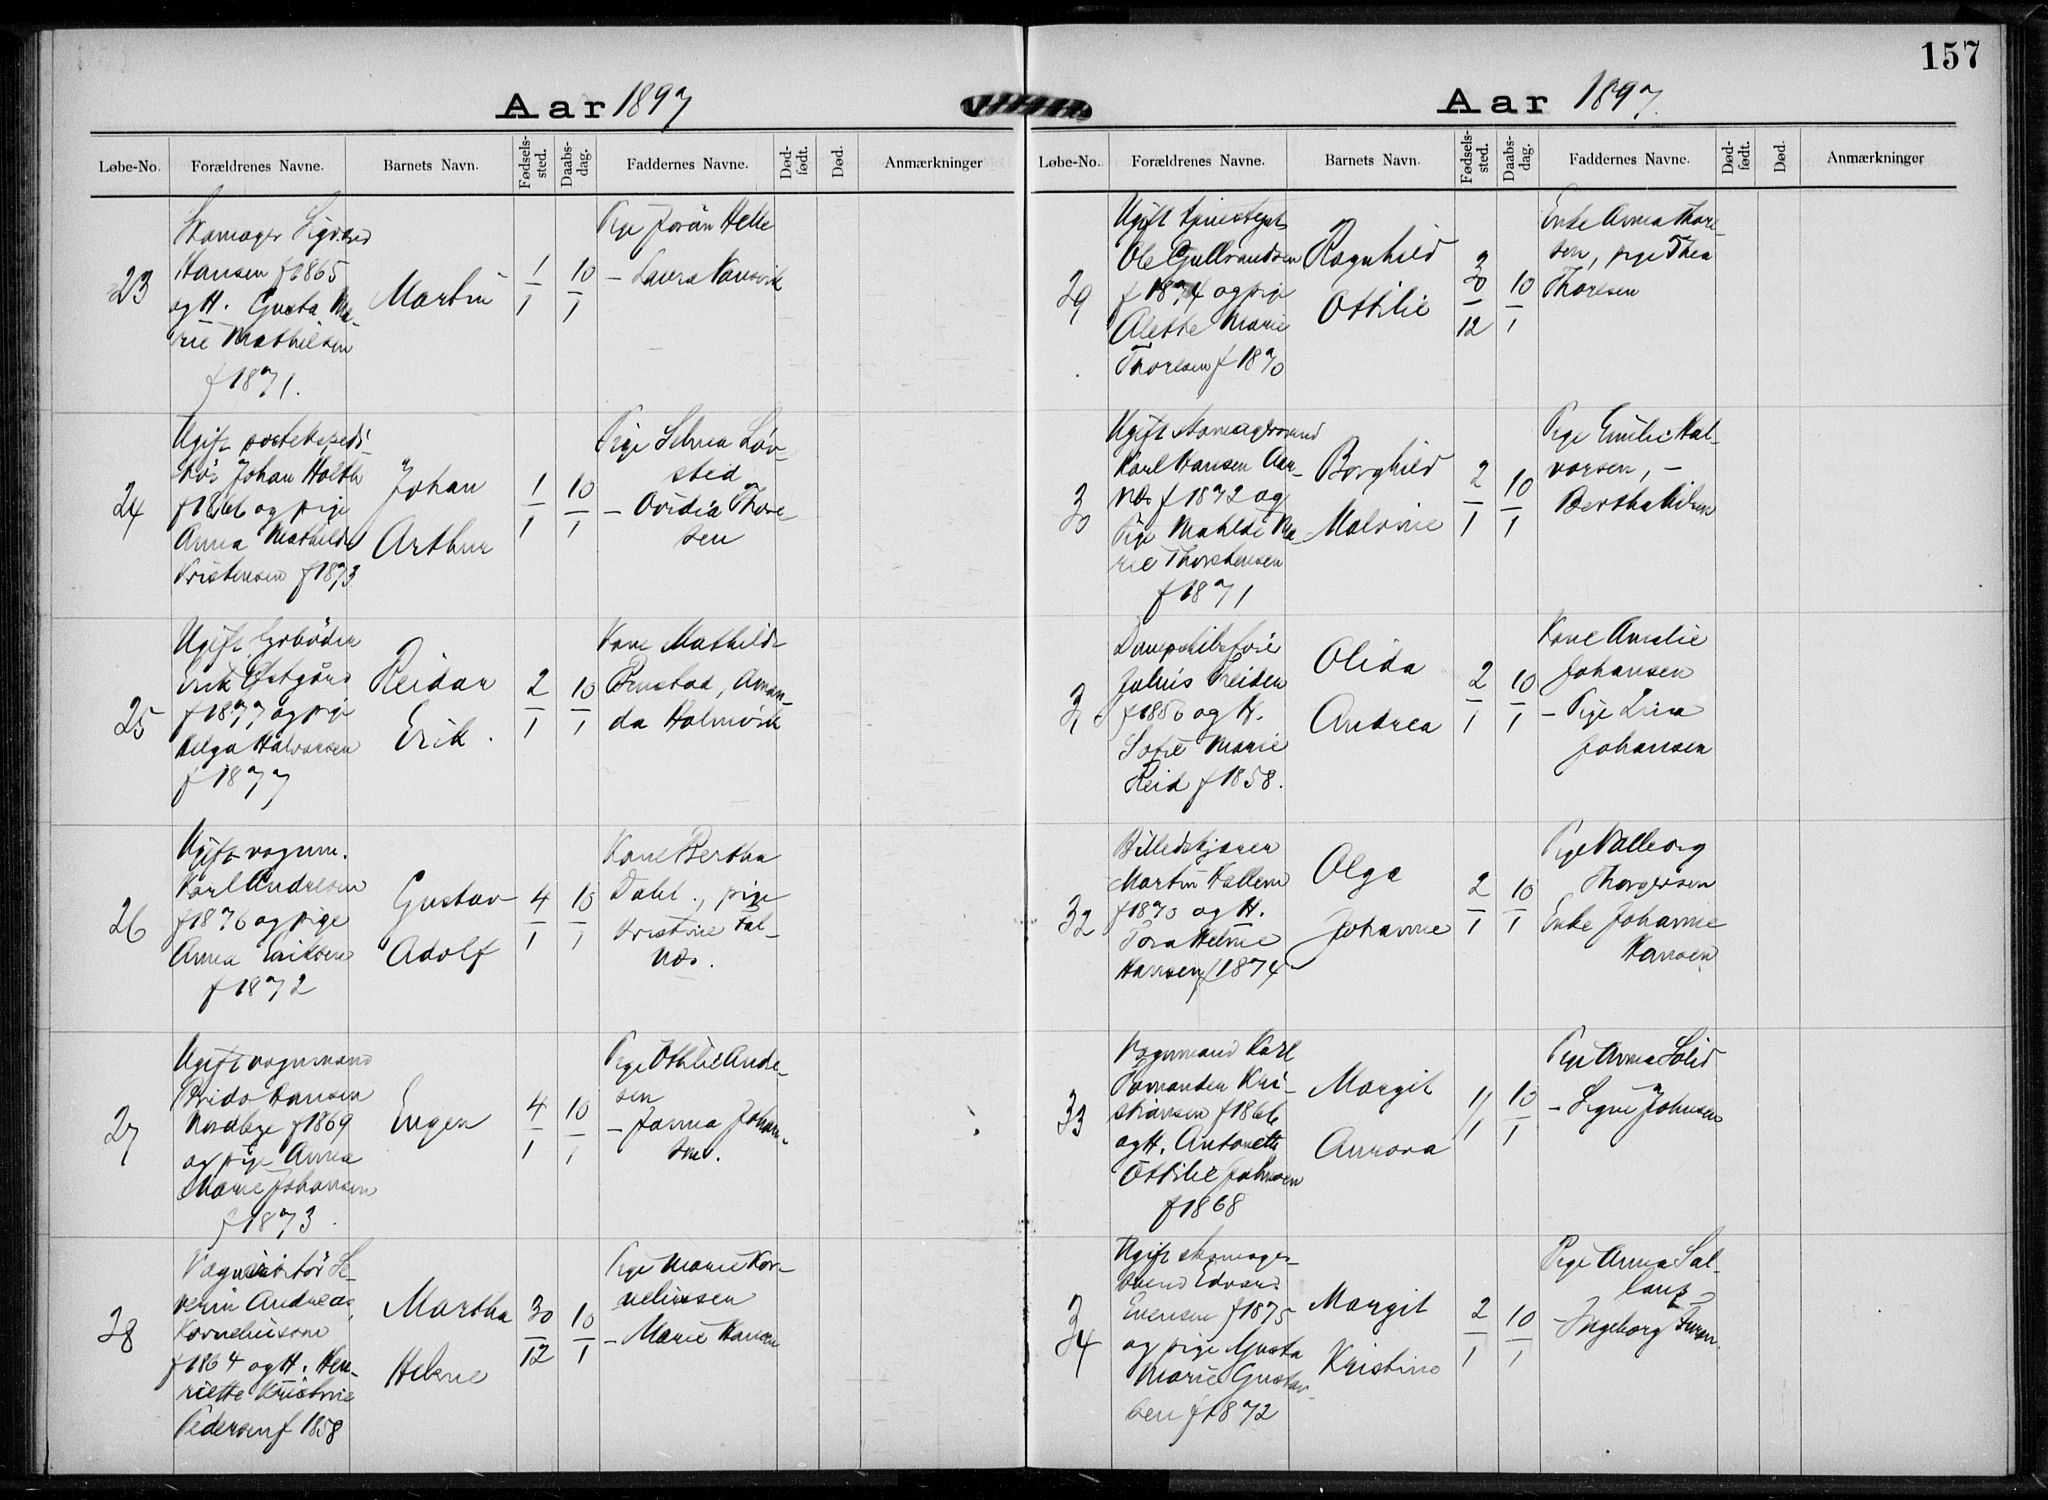 Aar 1897
Løbe-No. Forældrenes Navne. Barnets Navn. Fødsels-sted. Daabs-dag. Faddernes Navne. Død-født. Død. Anmærkninger
23
Skomager Sigvard
Hansen f 1865
og H. Gusta Ma-
rie Mathilsen
f 1871.
Martin
1/1
10/1
Pige Jorån Helle
— Laura
24
Ugift
Johan Holth
f 1866 og pige
Anna Mathilde
Kristensen f 1873
Johan
Arthur
1/1
10/1
Pige Selma Löv-
sted
— Ovidia Thore-
sen
25
Ugift
Erik Østgård
f 1877 og pige
Helga Halvorsen
f 1877
Reidar
Erik.
2/1
10/1
Kone Mathilde
Aman-
da Holmvik
26
Ugift vognm.
Karl Andresen
f 1876 og pige
Anna Eriksen
f 1872
Gustav
Adolf
4/1
10/1
Kone Bertha
Dahl., pige
Kristine Fal-
næs.
27
Ugift vognmand
Hansen
Nordbye f 1869
og pige Anna
Marie Johansen
f 1873.
Eugen
4/1
10/1
Pige Othilie Andre-
sen
— Janna Johan-
sen.
28
Se-
verin Andreas
Korneliusen
f 1864 og H. Hen-
riette Kristine
Pedersen f 1858
Martha
Helene
30/12
10/1
Pige Marie Kor-
neliussen
— Marie Hansen
157
Aar 1897.
Løbe-No. Forældrenes Navne. Barnets Navn. Fødsels-sted. Daabs-dag. Faddernes Navne. Død-født. Død. Anmærkninger
29
Ugift
Ole Gulbrandsen
f 1874 og pige
Alette Marie
Thoresen f 1870
Ragnhild
Ottilie
30/12
10/1
Enke Anna Thore-
sen, pige Thea
Thoresen
30
Ugift skomagersvend
Karl Hansen Aar-
næs f 1872 og
Pige Mathilde Ma-
rie Thorstensen
f 1871
Borghild
Malvine
2/1
10/1
Pige Emilie Hal-
vorsen, —
Bertha Nilsen
31
Julius
og H.
Sofie Marie
Reid f 1858.
Olida
Andrea
2/1
10/1
Kone Amalie
Johansen
— Pige Lina
Johansen
32
Billedskjærer
Martin Hallem
f 1870 og H.
Tora Helene
Hansen f 1874
Olga
Johanne
2/1
10/1
Pige Valborg
Thorgersen
Enke Johanne
Hansen
33
Vognmand Karl
Kri-
stiansen f 1866
og H. Antonette
Ottilie Johnsen
f 1868
Margit
Aurora
1/1
10/1
Pige Anna Solid
— Signe Johnsen
34
Ugift skomager-
svend Edvard
Evensen f 1875
og pige Gusta
Marie Gustav-
sen f 1872
Margit
Kristine
2/1
10/1
Pige Anna Sal-
— Ingeborg